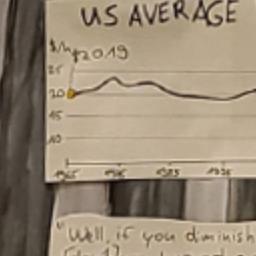 US AVERAGE
$/h
$2019
25
20
15
10
1965 1975 1985
"Well, if you diminish